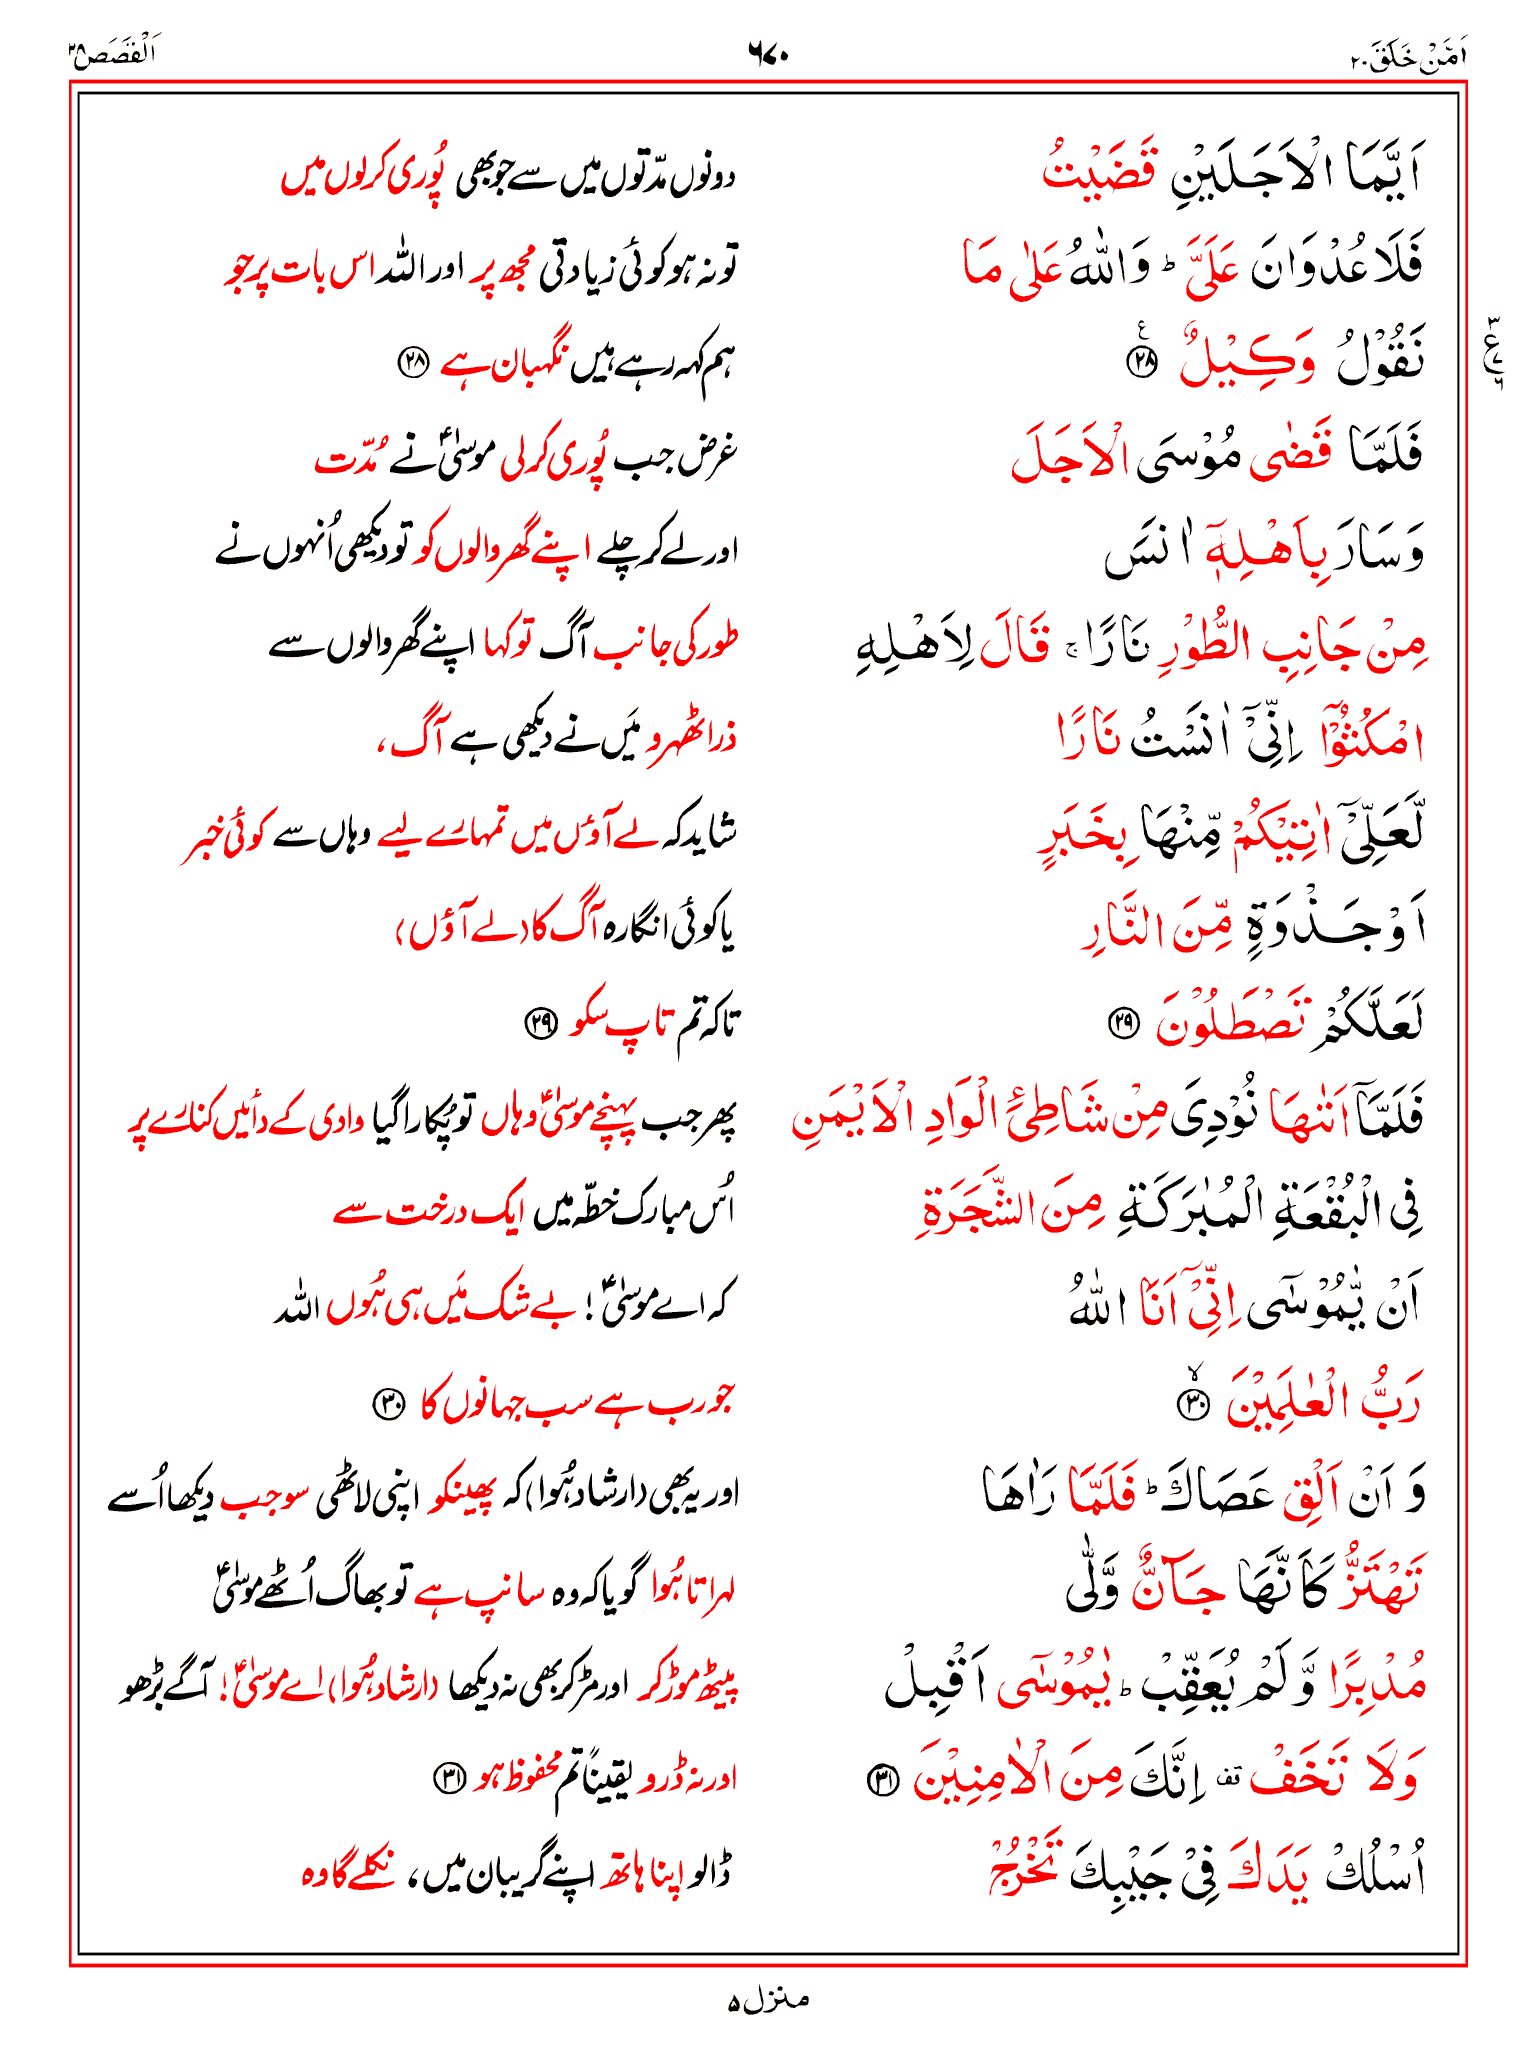 اَمَّنْ خَلَقَ ۲۰
۶۷۰
اَلْقَصَص ۲۸
اَيَّمَا الْاَجَلَيْنِ قَضَيْتُ
دونوں مدّتوں میں سے جو بھی پُوری کرلوں میں
فَلَا عُدْوَانَ عَلَيَّ ؕ وَاللّٰهُ عَلٰى مَا
تو نہ ہو کوئی زیادتی مجھ پر اور اللہ اس بات پر جو
نَقُوْلُ وَكِيْلٌ ۟ۧ ﴿۲۸﴾
ہم کہہ رہے ہیں نگہبان ہے ﴿۲۸﴾
فَلَمَّا قَضٰى مُوْسَى الْاَجَلَ
غرض جب پُوری کرلی موسٰیؑ نے مُدّت
وَسَارَ بِاَهْلِهٖۤ اٰنَسَ
اور لے کر چلے اپنے گھر والوں کو تو دیکھی اُنہوں نے
مِنْ جَانِبِ الطُّوْرِ نَارًا ۚ قَالَ لِاَهْلِهِ
طور کی جانب آگ تو کہا اپنے گھر والوں سے
امْكُثُوْۤا اِنِّيْۤ اٰنَسْتُ نَارًا
ذرا ٹھہرو مَیں نے دیکھی ہے آگ،
لَّعَلِّيْۤ اٰتِيْكُمْ مِّنْهَا بِخَبَرٍ
شاید کہ لے آؤں میں تمہارے لیے وہاں سے کوئی خبر
اَوْ جَذْوَةٍ مِّنَ النَّارِ
یا کوئی انگارہ آگ کا (لے آؤں)
لَعَلَّكُمْ تَصْطَلُوْنَ ﴿۲۹﴾
تاکہ تم تاپ سکو ﴿۲۹﴾
فَلَمَّاۤ اَتٰىهَا نُوْدِيَ مِنْ شَاطِئِ الْوَادِ الْاَيْمَنِ
پھر جب پہنچے موسٰیؑ وہاں تو پُکارا گیا وادی کے دائیں کنارے پر
فِي الْبُقْعَةِ الْمُبٰرَكَةِ مِنَ الشَّجَرَةِ
اُس مبارک خطّہ میں ایک درخت سے
اَنْ يّٰمُوْسٰۤى اِنِّيْۤ اَنَا اللّٰهُ
کہ اے موسٰیؑ! بے شک مَیں ہی ہُوں اللہ
رَبُّ الْعٰلَمِيْنَ ۙ﴿۳۰﴾
جو رب ہے سب جہانوں کا ﴿۳۰﴾
وَ اَنْ اَلْقِ عَصَاكَ ؕ فَلَمَّا رَاٰهَا
اور یہ بھی (ارشاد ہُوا) کہ پھینکو اپنی لاٹھی سو جب دیکھا اُسے
تَهْتَزُّ كَاَنَّهَا جَآنٌّ وَّلّٰى
لہراتا ہُوا گویا کہ وہ سانپ ہے تو بھاگ اُٹھے موسٰیؑ
مُدْبِرًا وَّلَمْ يُعَقِّبْ ؕ يٰمُوْسٰۤى اَقْبِلْ
پیٹھ موڑ کر اور مڑ کر بھی نہ دیکھا (ارشاد ہُوا) اے موسٰیؑ! آگے بڑھو
وَلَا تَخَفْ ۟ قف اِنَّكَ مِنَ الْاٰمِنِيْنَ ﴿۳۱﴾
اور نہ ڈرو یقیناً تم محفوظ ہو ﴿۳۱﴾
اُسْلُكْ يَدَكَ فِيْ جَيْبِكَ تَخْرُجْ
ڈالو اپنا ہاتھ اپنے گریبان میں، نکلے گا وہ
منزل ۵